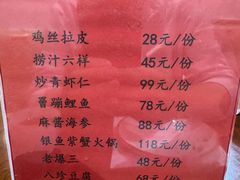 鸡丝拉皮 28元/份
捞汁六样 45元/份
炒青虾仁 99元/份
罾蹦鲤鱼 78元/份
麻酱海参 88元/份
银鱼紫蟹火锅 118元/份
老爆三 48元/份
八珍豆腐 68元/份